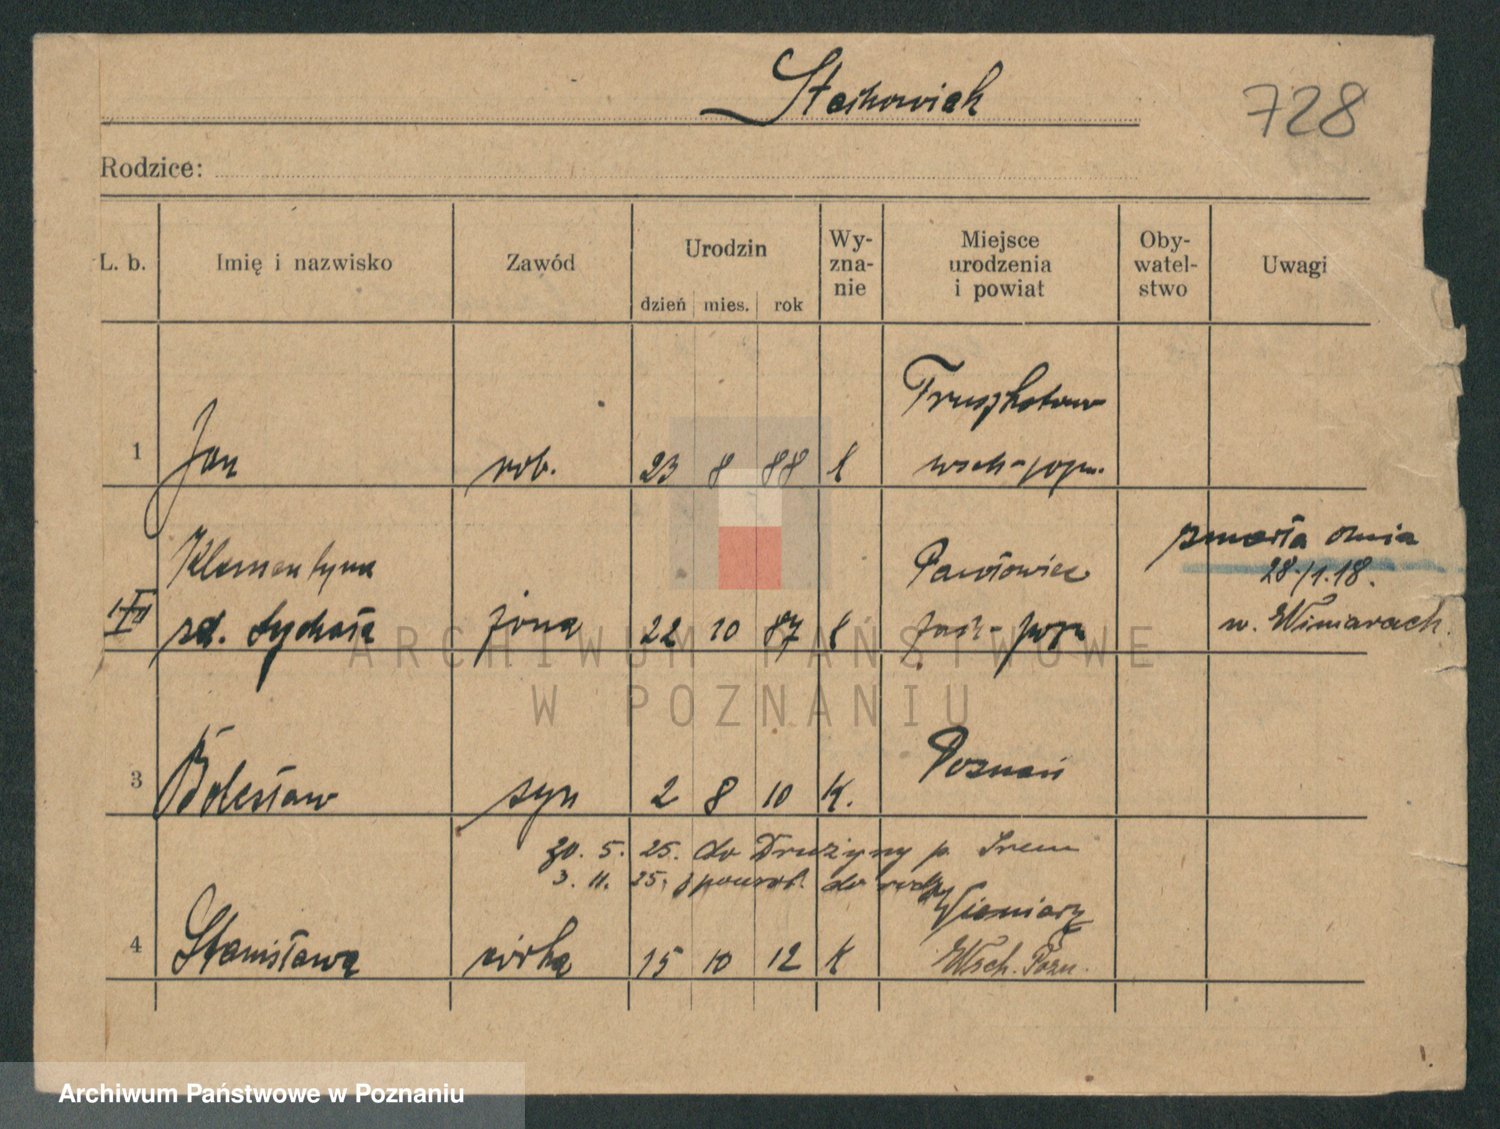 Stachowiak
728
Rodzice:
L. b. Imię i nazwisko Zawód Urodzin Wy-zna-nie Miejsce urodzenia i powiat Oby-watel-stwo Uwagi
dzień mies. rok
1 Jan rob. 23 8 88 k
wsch-pozn.
Klementyna
zd. żona 22 10 87 k
zmarła dnia
28./1.18.
w. Winiarach.
3 Bolesław syn 2 8 10 K. Poznań
30. 5. 25. do Drużyny p. Śrem
3. 11. 25. do
4 Stanisława córka 15 10 12 K
Wsch. Pozn.
ARCHIWUM PAŃSTWOWE
W POZNANIU
Archiwum Państwowe w Poznaniu